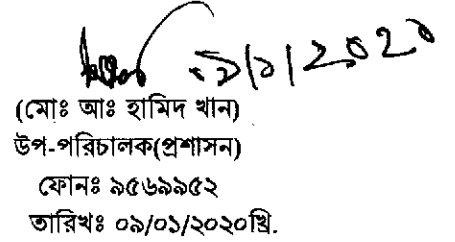 ০৯/০১/২০২০
(মোঃ আঃ হামিদ খান)
উপ-পরিচালক(প্রশাসন)
ফোনঃ ৯৫৬৯৯৫২
তারিখঃ ০৯/০১/২০২০খ্রি.